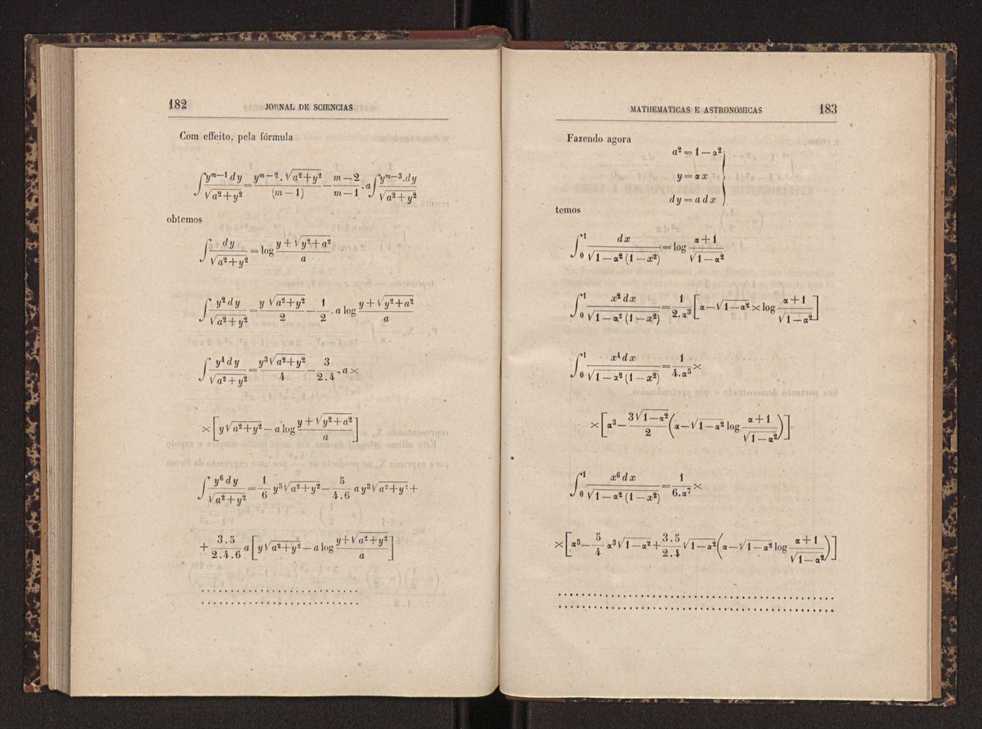 182 JORNAL DE SCIENCIAS
Com effeito, pela fórmula
∫ y^{m−1} dy / √(a²+y²) = y^{m−2} . √(a²+y²) / (m−1) − (m−2)/(m−1) . a ∫ y^{m−3} . dy / √(a²+y²)
obtemos
∫ dy / √(a²+y²) = log (y+√(y²+a²)) / a
∫ y² dy / √(a²+y²) = y √(a²+y²) / 2 − 1/2 . a log (y+√(y²+a²)) / a
∫ y⁴ dy / √(a²+y²) = y³ √(a²+y²) / 4 − 3/2.4 . a ×
× [ y √(a²+y²) − a log (y+√(y²+a²)) / a ]
∫ y⁶ dy / √(a²+y²) = 1/6 y⁵ √(a²+y²) − 5/4.6 a y³ √(a²+y²) +
+ 3.5/2.4.6 a [ y √(a²+y²) − a log (y+√(a²+y²)) / a ]
. . . . . . . . . . . . . . . . . . . . . . . . . .
. . . . . . . . . . . . . . . . . . . . . . . . . .
MATHEMATICAS E ASTRONOMICAS 183
Fazendo agora
a² = 1 − α²
y = α x
dy = a dx }
temos
∫₀¹ dx / √(1−α² (1−x²)) = log (α+1) / √(1−α²)
∫₀¹ x² dx / √(1−α² (1−x²)) = 1/2.α³ [ α − √(1−α²) × log (α+1) / √(1−α²) ]
∫₀¹ x⁴ dx / √(1−α² (1−x²)) = 1/4.α⁵ ×
× [ α³ − 3√(1−α²) / 2 ( α − √(1−α²) log (α+1) / √(1−α²) ) ]
∫₀¹ x⁶ dx / √(1−α² (1−x²)) = 1/6.α⁷ ×
× [ α⁵ − 5/4 α³ √(1−α²) + 3.5/2.4 √(1−α²) ( α − √(1−α²) log (α+1) / √(1−α²) ) ]
. . . . . . . . . . . . . . . . . . . . . . . . . . . . . . . . . . . . . . . .
. . . . . . . . . . . . . . . . . . . . . . . . . . . . . . . . . . . . . . . .